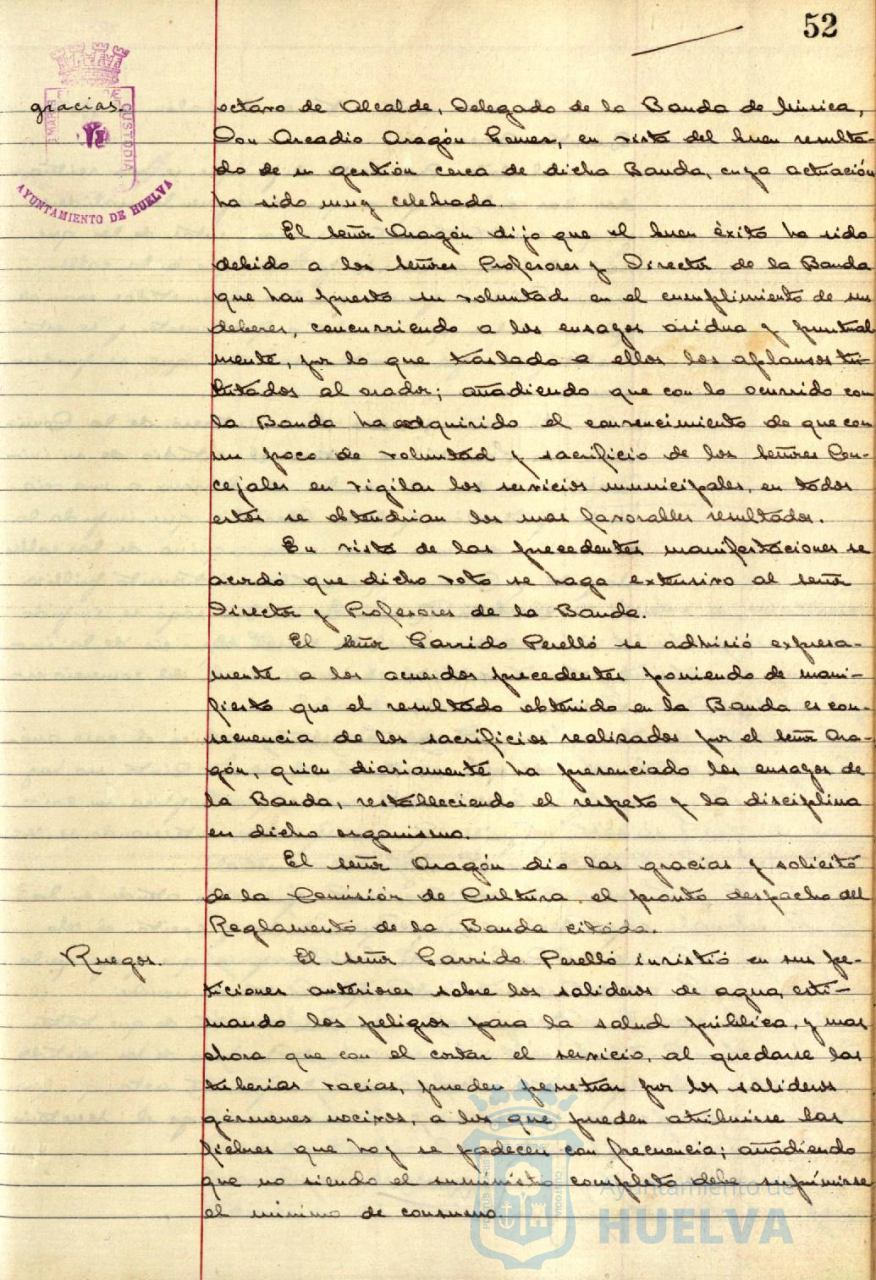 52
gracias.
octavo de Alcalde, Delegado de la Banda de Música,
Don Arcadio Aragón Gomez, en vista del buen resulta-
do de su gestión cerca de dicha Banda, cuya actuación
ha sido muy celebrada.
El señor Aragón dijo que el buen éxito ha sido
debido a los señores Profesores y Director de la Banda
que han puesto su voluntad en el cumplimiento de sus
deberes, concurriendo a los ensayos asidua y puntual
mente, por lo que traslada a ellos los aplausos tri-
butados al orador; añadiendo que con lo ocurrido con
la Banda ha adquirido el convencimiento de que con
un poco de voluntad y sacrificio de los señores Con-
cejales en vigilar los servicios municipales, en todos
estos se obtendrian los mas favorables resultados.
En vista de las precedentes manifestaciones se
acordó que dicho voto se haga extensivo al señor
Director y Profesores de la Banda.
El señor Garrido Perelló se adhirió expresa-
mente a los acuerdos precedentes poniendo de mani-
fiesto que el resultado obtenido en la Banda es con-
secuencia de los sacrificios realizados por el señor Ara-
gón, quien diariamente ha presenciado los ensayos de
la Banda, restableciendo el respeto y la disciplina
en dicho organismo.
El señor Aragón dio las gracias y solicitó
de la Comisión de Cultura el pronto despacho del
Reglamento de la Banda citada.
Ruegos.
El señor Garrido Perelló insistió en sus pe-
ticiones anteriores sobre los salideros de agua, esti-
mando los peligros para la salud pública, y mas
ahora que con el cortar el servicio, al quedarse las
tuberias vacias, pueden penetrar por los salideros
gérmenes nocivos, a los que pueden atribuirse las
fiebres que hoy se padecen con frecuencia; añadiendo
que no siendo el suministro completo debe suprimirse
el minimo de consumo.
CUSTODIA
AYUNTAMIENTO DE HUELVA
Ayuntamiento de
HUELVA